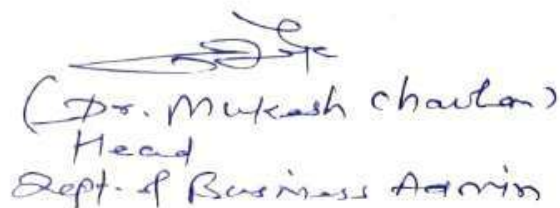 (Dr. Mukesh Chauhan)
Head
Dept. of Business Admin